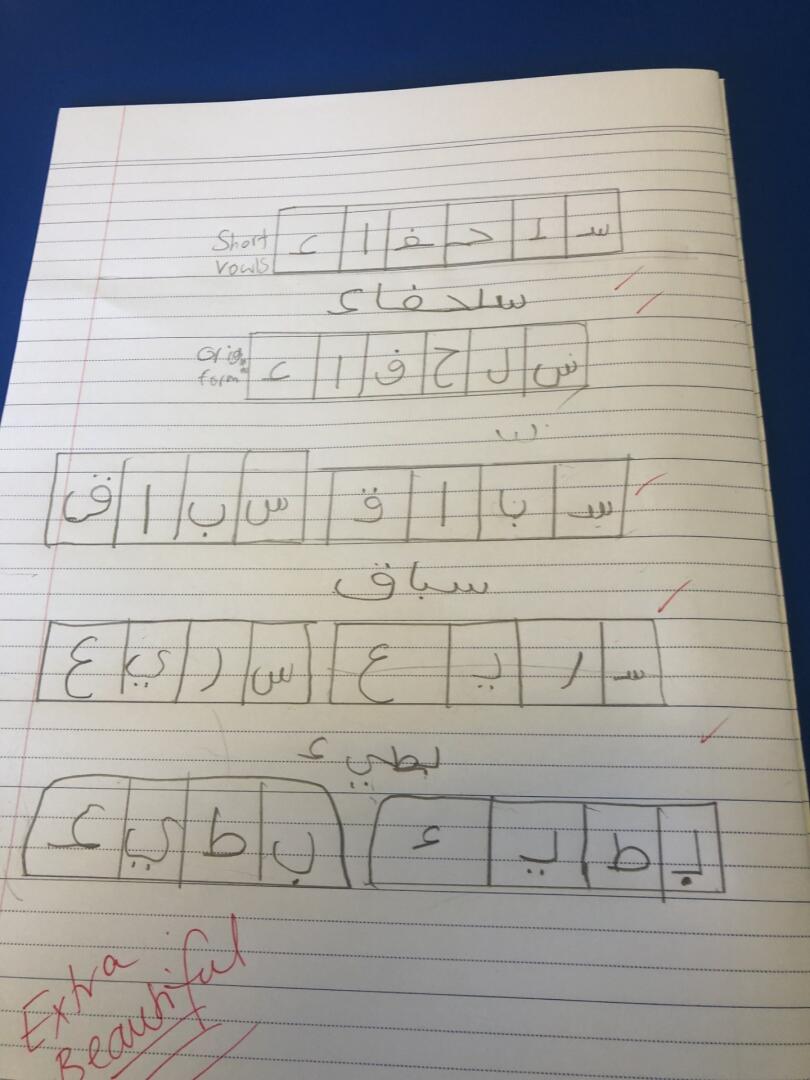 Short vowls سـ لـ حـ فـ ا ء
سلحفاء
Orig. form س ل ح ف ا ء
سـ بـ ا ق س ب ا ق
سباق
سـ ر يـ ع س ر ي ع
بطيء
بـ ط يـ ء ب ط ي ء
Extra
Beautiful